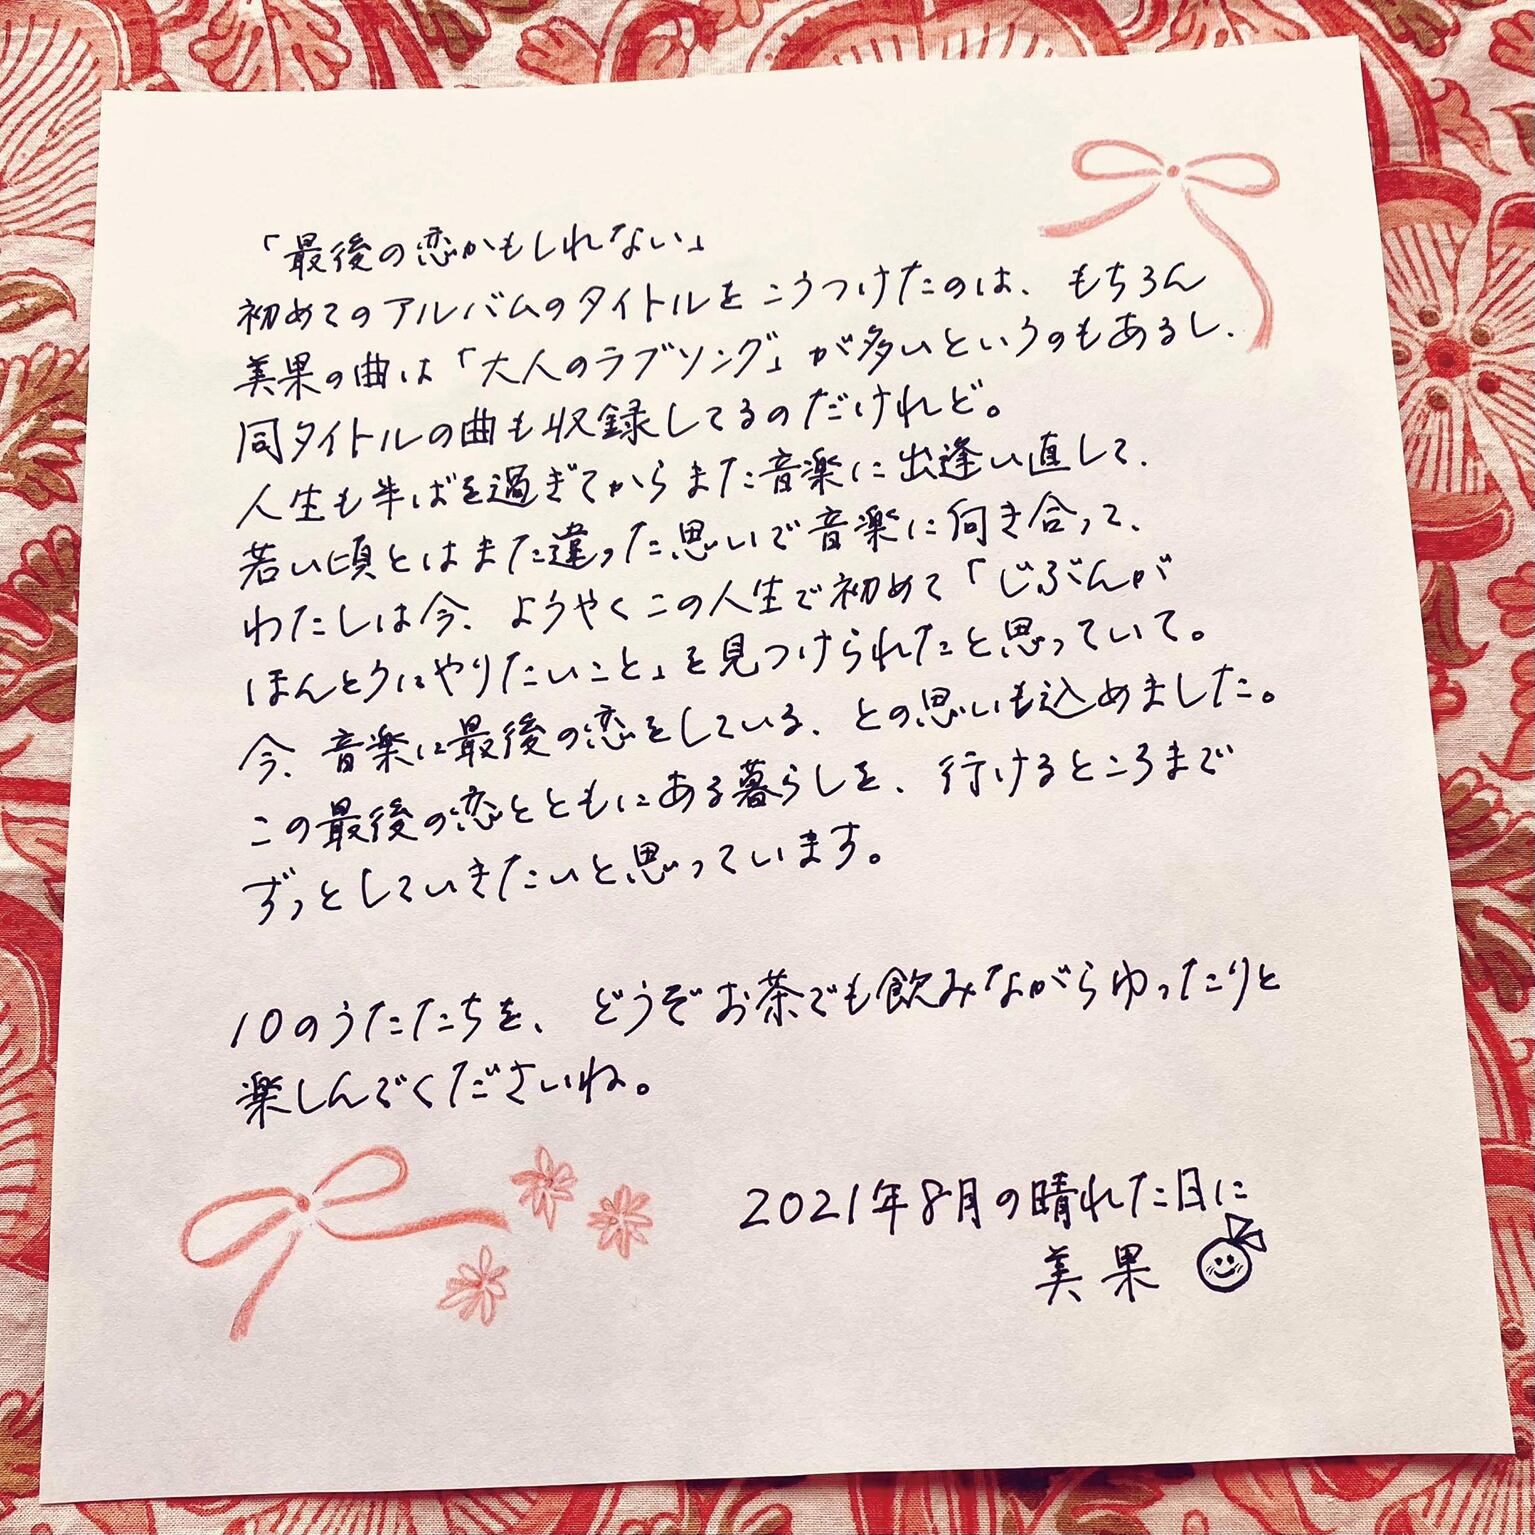 「最後の恋かもしれない」
初めてのアルバムのタイトルをこうつけたのは、もちろん
美果の曲は「大人のラブソング」が多いというのもあるし、
同タイトルの曲も収録してるのだけれど。
人生も半ばを過ぎてからまた音楽に出逢い直して、
若い頃とはまた違った思いで音楽に向き合って、
わたしは今、ようやくこの人生で初めて「じぶんが
ほんとうにやりたいこと」を見つけられたと思っていて。
今、音楽に最後の恋をしている、との思いも込めました。
この最後の恋とともにある暮らしを、行けるところまで
ずっとしていきたいと思っています。
10のうたたちを、どうぞお茶でも飲みながらゆったりと
楽しんでくださいね。
2021年8月の晴れた日に
美果